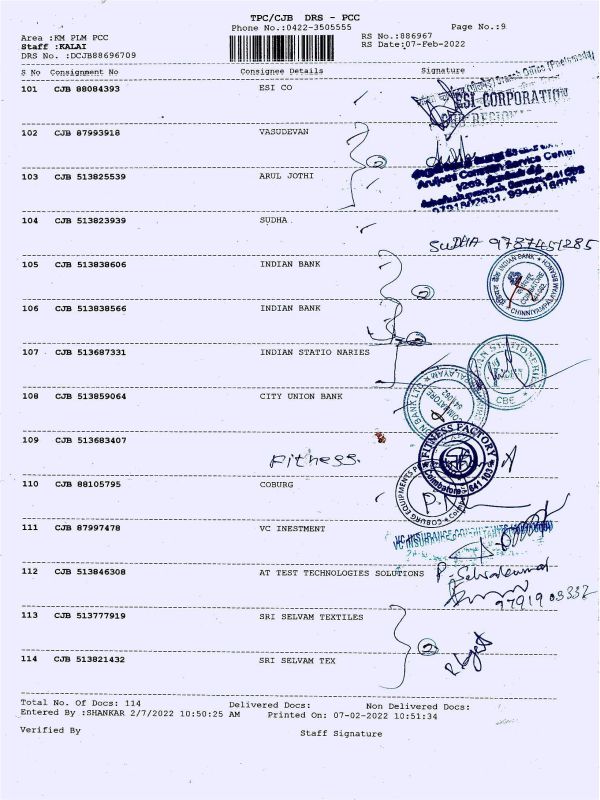 TPC/CJB DRS - PCC
Phone No.:0422-3505555
Page No.:9
Area :KM PLM PCC
RS No.:886967
Staff :KALAI
RS Date:07-Feb-2022
DRS No. :DCJB88696709
S No Consignment No Consignee Details Signature
101 CJB 88084393 ESI CO
ESI CORPORATION
102 CJB 87993918 VASUDEVAN
103 CJB 513825539 ARUL JOTHI
104 CJB 513823939 SUDHA
SUDHA 9787451285
105 CJB 513838606 INDIAN BANK
INDIAN BANK
106 CJB 513838566 INDIAN BANK
107 CJB 513687331 INDIAN STATIO NARIES
CBE
108 CJB 513859064 CITY UNION BANK
COIMBATORE
109 CJB 513683407
Fitness.
FITNESS FACTORY
Coimbatore - 641 103
110 CJB 88105795 COBURG
COBURG EQUIPMENTS
111 CJB 87997478 VC INESTMENT
VC INSURANCE CONSULTANTS
112 CJB 513846308 AT TEST TECHNOLOGIES SOLUTIONS
P. Selvakumar
113 CJB 513777919 SRI SELVAM TEXTILES
2
114 CJB 513821432 SRI SELVAM TEX
Total No. Of Docs: 114 Delivered Docs: Non Delivered Docs:
Entered By :SHANKAR 2/7/2022 10:50:25 AM Printed On: 07-02-2022 10:51:34
Verified By Staff Signature